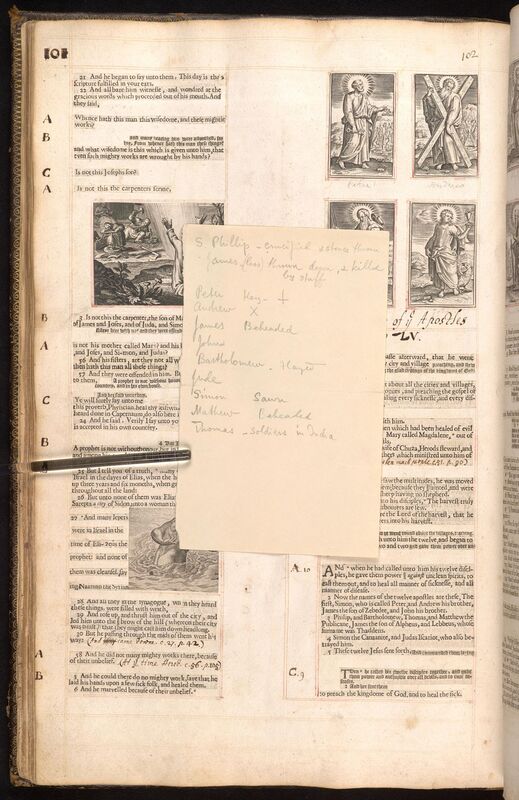 101
102
21 And he began to say unto them, This day is this
Scripture fulfilled in your eares.
22 And all bare him witnesse, and wondred at the
gracious words which proceeded out of his mouth. And
they said,
A
Whence hath this man this wisedome, and these mightie
works?
B
and many hearing him were astonished, saying, From whence hath this man these things?
and what wisedome is this which is given unto him, that
even such mighty works are wrought by his hands?
C
Is not this Josephs son?
A
Is not this the carpenters sonne,
Peter
Andrew
S Phillip - crucified & stones thrown
James (less) thrown down, & killed
by staff
Peter Keys - +
Andrew X
James Beheaded
John
Bartholomew - Flayed
Jude
Simon Sawn
Mathew Beheaded
Thomas - soldiers in India
B
3 Is not this the carpenter, the son of
of James and Joses, and of Juda, and
A
is not his mother called Mary? and his
and Joses, and Simon, and Judas?
56 And his sisters, are they not all
then hath this man all these things?
B
57 And they were offended in him.
to them,
C
Ye will surely say unto me
this proverb, Physician, heal thy
heard done in Capernaum, do also here
24 And he said, Verily I say unto you
is accepted in his own country.
B
A prophet is not without honour, but in
25 But I tell you of a truth,
Israel in the dayes of Elias, when the
up three years and six moneths, when
throughout all the land:
26 But unto none of them was Elias
Sarepta a city of Sidon, unto a woman
27 And many lepers
were in Israel in the
time of Elizeus the
prophet: and none of
them was cleansed, saving
Naaman the Syrian
28 And all they in the synagogue, when they heard
these things, were filled with wrath,
29 And rose up, and thrust him out of the city, and
led him unto the brow of the hill (whereon their city
was built) that they might cast him down headlong.
30 But he passing through the mids of them went his
way:
A
58 And he did not many mighty works there, because
of their unbelief.
B
5 And he could there do no mighty work, save that he
laid his hands upon a few sick folk, and healed them.
6 And he marvelled because of their unbelief.
of ye Apostles
LV.
afterward, that he went
city and village
about all the cities and villages,
healing every sicknesse, and every
with him.
which had been healed of evil
Mary called Magdalene, out of
of Chuza, Herods steward, and
which ministred unto him of
saw the multitudes, he was moved
because they fainted, and were
sheep having no shepherd.
unto his disciples, The harvest truly
labourers are few.
the Lord of the harvest, that he
into his harvest.
unto him the twelve, and began to
A.10
ANd when he had called unto him his twelve disciples,
he gave them power against unclean spirits, to
cast them out, and to heal all manner of sicknesse, and all
manner of disease.
2 Now the names of the twelve apostles are these, The
first, Simon, who is called Peter, and Andrew his brother,
James the son of Zebedee, and John his brother.
3 Philip, and Bartholomew, Thomas, and Matthew the
Publicane, James the son of Alpheus, and Lebbeus, whose
surname was Thaddeus.
4 Simon the Canaanite, and Judas Iscariot, who also betrayed
him.
5 These twelve Jesus sent forth, and commanded them
C.9
THen he called his twelve disciples together, and gave
them power and authority over all devils, and to cure diseases.
2 And he sent them
to preach the kingdom of God, and to heal the sick.